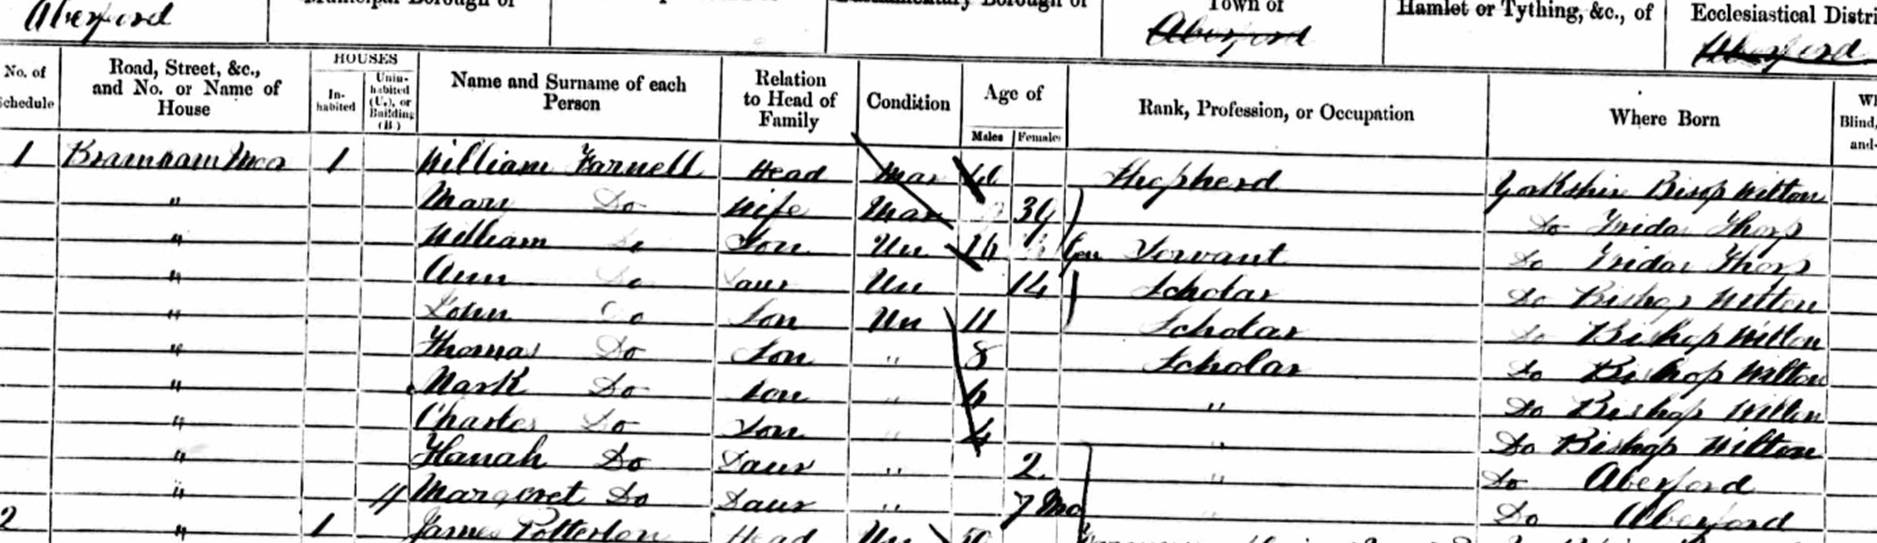 Aberford
Town of
Hamlet or Tything, &c., of
Ecclesiastical Distri
Aberford
Aberford
No. of Schedule
Road, Street, &c., and No. or Name of House
HOUSES
In-habited
Unin-habited (U.), or Building (B)
Name and Surname of each Person
Relation to Head of Family
Condition
Age of
Males
Females
Rank, Profession, or Occupation
Where Born
Blind,
1 Bramham Moor 1 William Farnell Head Mar Shepherd Yorkshire Bisop Wilton
" Mary Do Wife Mar 39 Do Frida Thorp
" William Do Son Un 16 Gen Servant Do Frida Thorp
" Ann Do Daur Un 14 Scholar Do Bishop Wilton
" John Do Son Un 11 Scholar Do Bishop Wilton
" Thomas Do Son " 8 Scholar Do Bishop Wilton
" Mark Do Son " 6 " Do Bishop Wilton
" Charles Do Son " 4 " Do Bishop Wilton
" Hanah Do Daur " 2 " Do Aberford
" Margaret Do Daur " 7 Mo " Do Aberford
2 " 1 James Potterton Head Un 50